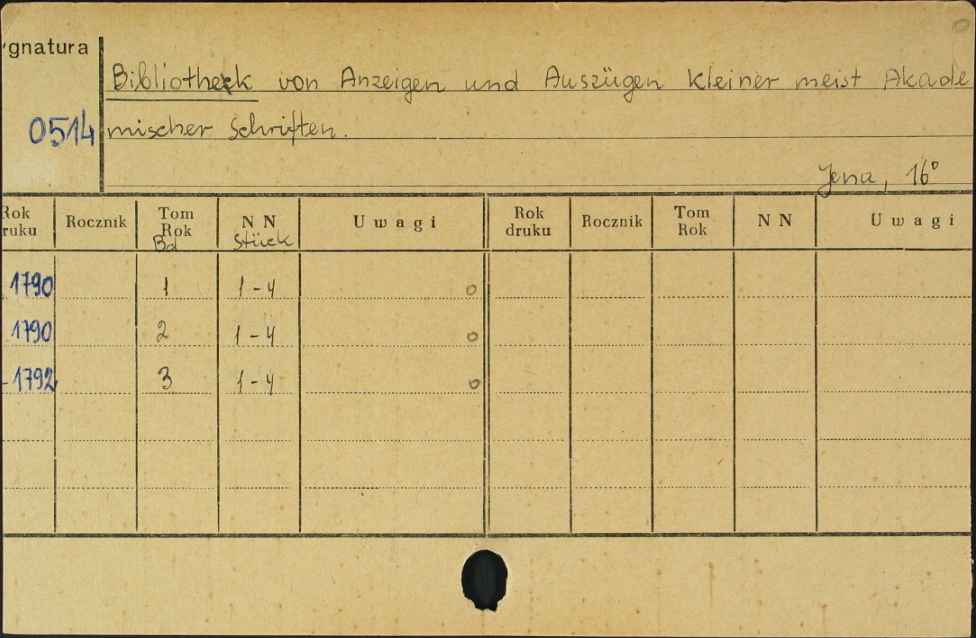 gnatura
Bibliotheck von Anzeigen und Auszügen kleiner meist Akade
0514 mischer Schriften.
Jena, 16°
Rok druku Rocznik Tom Rok N N U w a g i Rok druku Rocznik Tom Rok N N U w a g i
Bd Stück
1790 1 1-4 0
1790 2 1-4 0
-1792 3 1-4 0